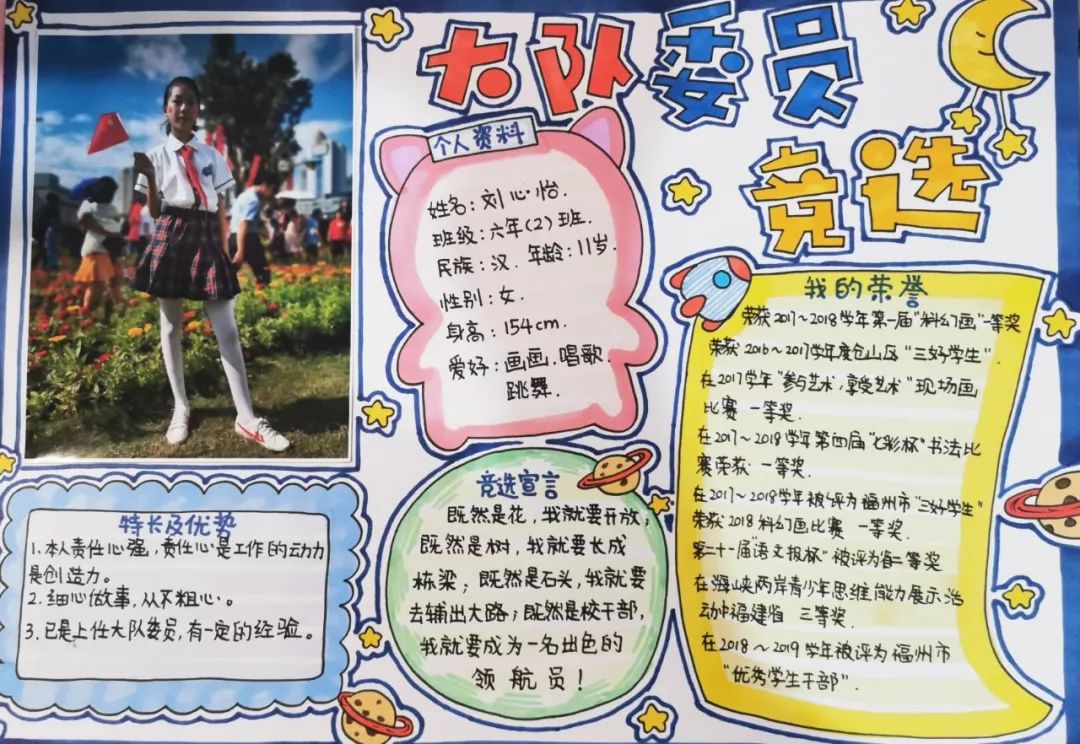 大队委员
竞选
个人资料
姓名:刘心怡.
班级:六年(2)班.
民族:汉. 年龄:11岁.
性别:女.
身高:154cm.
爱好:画画,唱歌,
跳舞.
竞选宣言
既然是花,我就要开放;
既然是树,我就要长成
栋梁;既然是石头,我就要
去辅出大路;既然是校干部,
我就要成为一名出色的
领航员!
特长及优势
1.本人责任心强,责任心是工作的动力
是创造力。
2.细心做事,从不粗心。
3.已是上任大队委员,有一定的经验。
我的荣誉
荣获2017~2018学年第一届"科幻画"一等奖
荣获2016~2017学年度仓山区"三好学生".
在2017学年"参与艺术,享受艺术"现场画
比赛 一等奖.
在2017~2018学年第四届"七彩杯"书法比
赛荣获 一等奖.
在2017~2018学年被评为福州市"三好学生"
荣获2018科幻画比赛 一等奖.
第二十一届"语文报杯"被评为省二等奖
在海峡两岸青少年思维能力展示活
动中福建省 三等奖.
在2018~2019学年被评为福州市
"优秀学生干部".